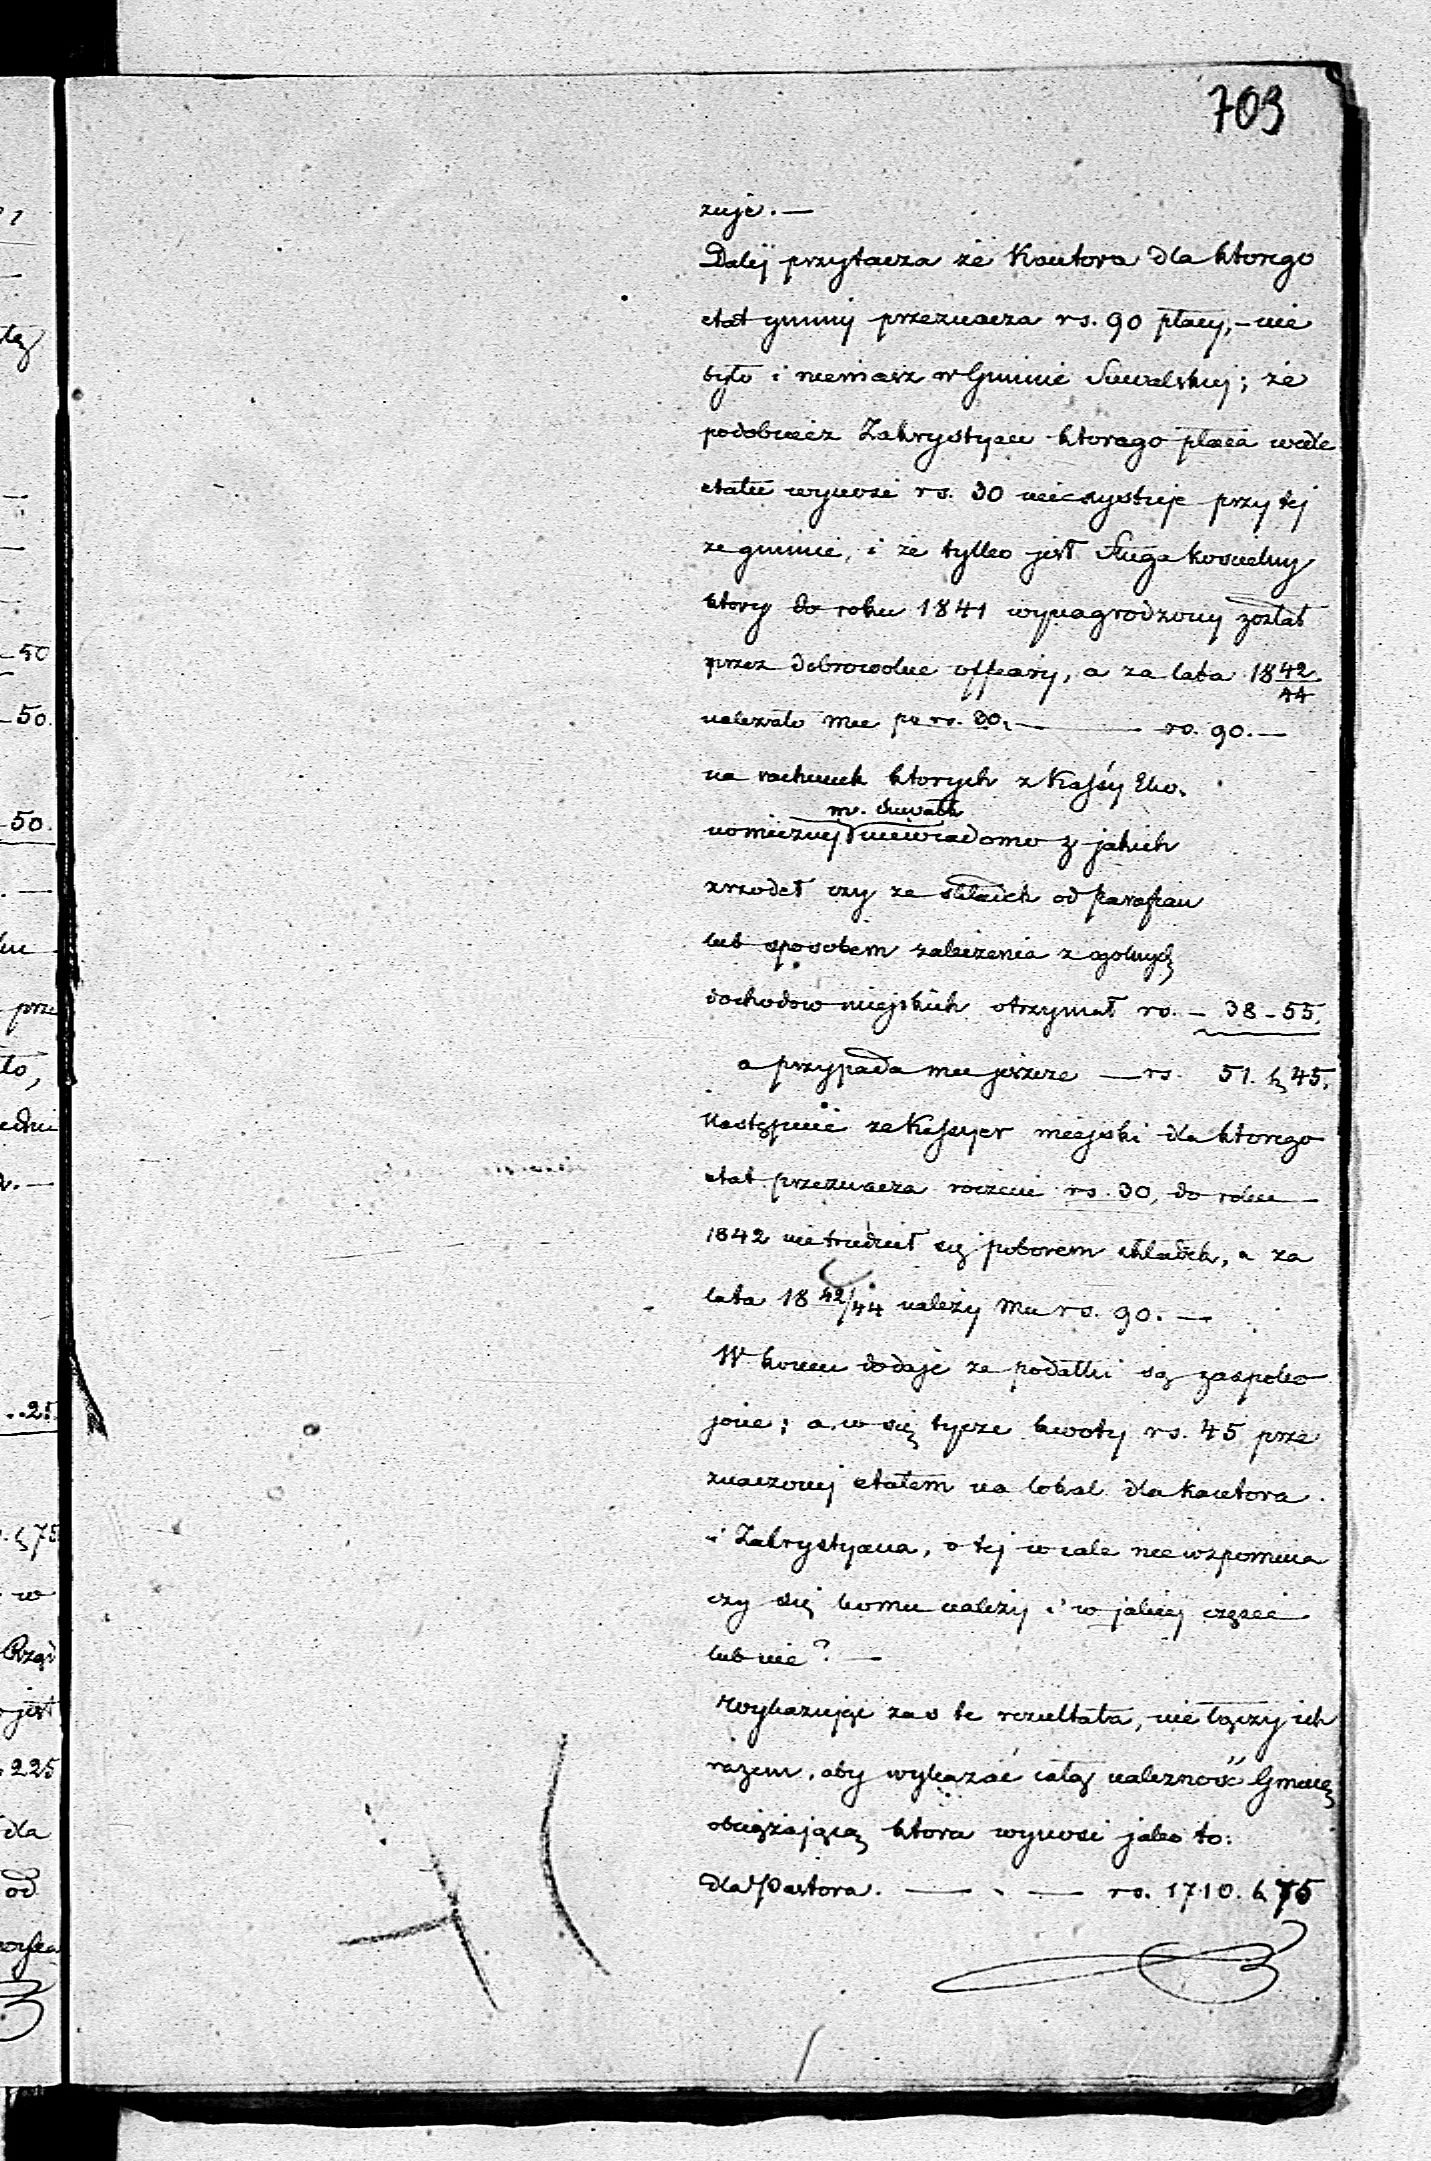 703
zuje. —
Dalej przytacza że Kantora dla ktorego
etat gminy przeznacza rs. 90 płacy, – nie
było i niemasz w Gminie Suwalskiej; że
podobnież Zakrystyan ktorego płaca wedle
etatu wynosi rs. 30 nieexystuje przy tej
ze gminie, i że tylko jest Sługa kościelny
ktory do roku 1841 wynagrodzony został
przez dobrowolne offiary, a za lata 18 42/44
należało mu po rs. 30. — rs. 90. —
na rachunek ktorych z Kassy Eko-
nomicznej m. Suwałk niewiadomo z jakich
zrzodeł czy ze składek od Parafian
lub sposobem zaliczenia z ogolnych
dochodow miejskich otrzymał rs. – 38 – 55.
a przypada mu jeszcze — rs. 51. k 45.
Następnie że Kassyer miejski dla ktorego
etat przeznacza rocznie rs. 30, do roku
1842 nietrudnił się poborem składek, a za
lata 18 42/44 należy mu rs. 90. —
W koncu dodaje że podatki są zaspoko
jone; a co się tycze kwoty rs. 45 prze
znaczonej etatem na lokal dla kantora
i Zakrystyana, o tej w cale nie wspomina
czy się komu należy i w jakiej części
lub nie? —
Wykazując zaś te rezultata, nie łączy ich
razem, aby wykazać całą należność Gminę
obciążającą ktora wynosi jako to:
dla Pastora. — . — rs. 1710. k 75